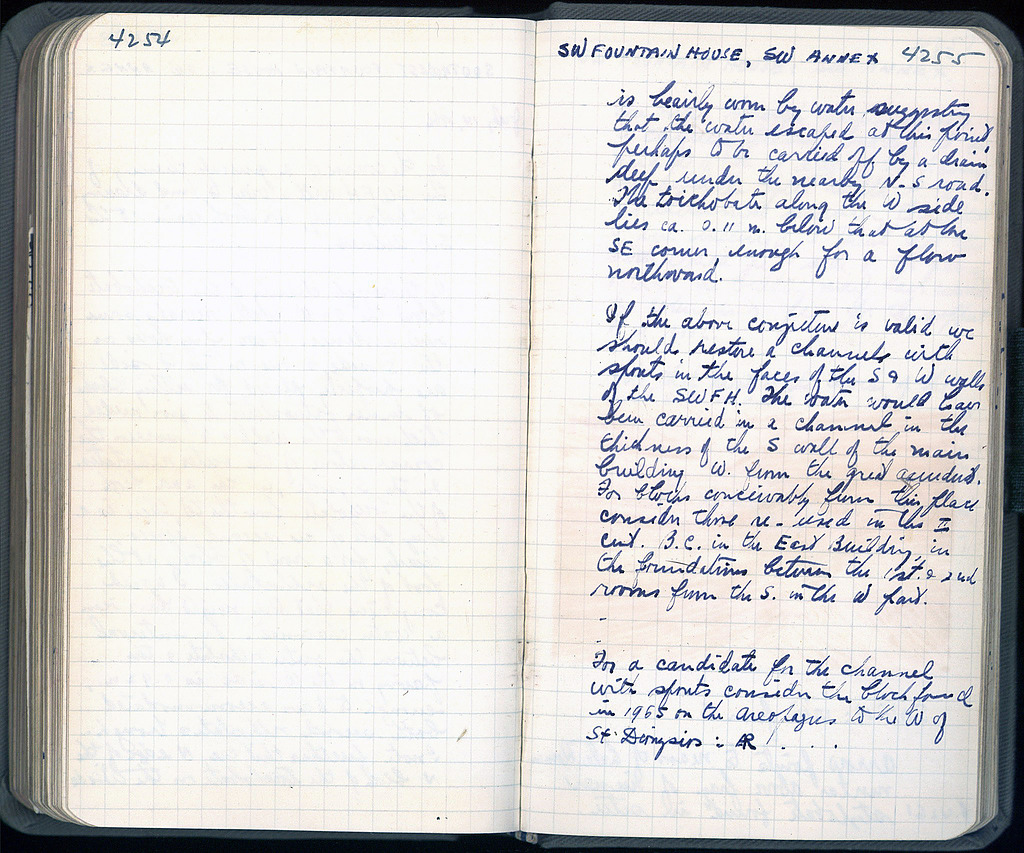 4254
SW FOUNTAIN HOUSE, SW ANNEX 4255
is heavily worn by water, suggesting
that the water escaped at this point
perhaps to be carried off by a drain
deep under the nearby N-S road.
The toichobate along the W side
lies ca. 0.11 m. below that at the
SE corner, enough for a flow
northward.
If the above conjecture is valid we
should restore a channel with
spouts in the faces of the S & W walls
of the SWFH. The water would have
been carried in a channel in the
thickness of the S wall of the main
building W. from the great aqueduct.
For blocks conceivably from this place
consider those re-used in the I
cent. B.C. in the East Building, in
the foundations between the 1st. & 2nd
rooms from the S. in the W part.
-
For a candidate for the channel
with spouts consider the block found
in 1965 on the Areopagus to the W of
St. Dionysios : AR . . . .